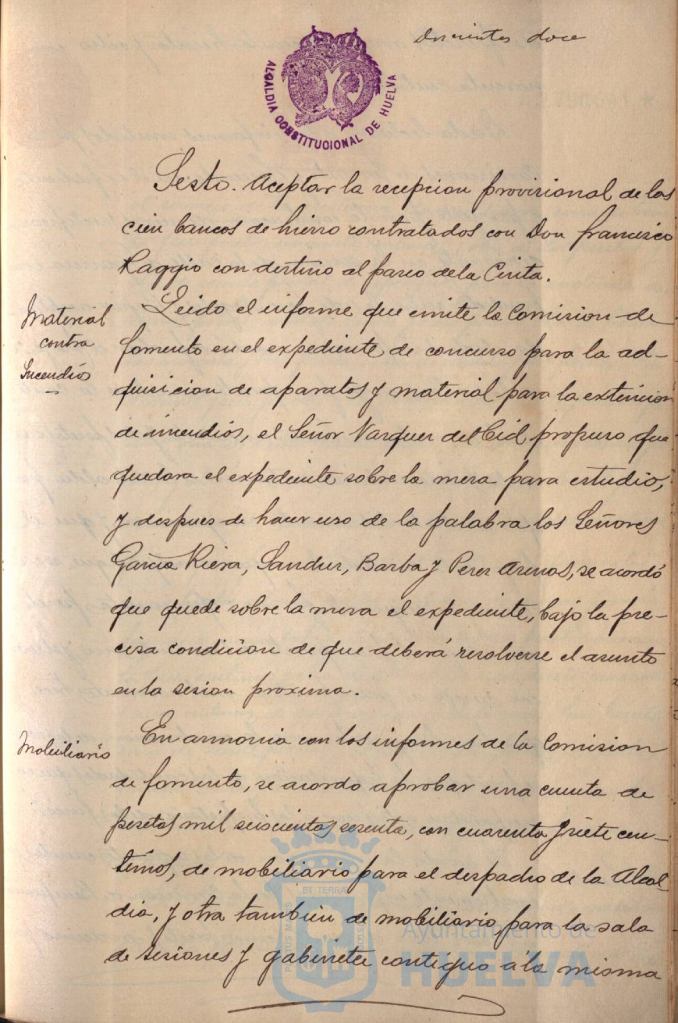 Doscientos doce
ALCALDIA CONSTITUCIONAL DE HUELVA
Sesto. Aceptar la recepcion provisional de los
cien bancos de hierro contratados con Don Francisco
Raggio con destino al paseo de la Cinta.
Material
contra
Incendios
Leido el informe que emite la Comision de
fomento en el expediente de concurso para la ad-
quisicion de aparatos y material para la extincion
de incendios, el Señor Vazquez del Cid propuso que
quedara el expediente sobre la mesa para estudio,
y despues de hacer uso de la palabra los Señores
Garcia Riera, Barba y Perez Arenas, se acordó
que quede sobre la mesa el expediente, bajo la pre-
cisa condicion de que deberá resolverse el asunto
en la sesion proxima.
Mobiliario
En armonia con los informes de la Comision
de fomento, se acordo aprobar una cuenta de
pesetas mil seiscientas sesenta, con cuarenta y siete cen-
timos, de mobiliario para el despacho de la Alcal-
dia, y otra tambien de mobiliario para la sala
de sesiones y gabinete contiguo a la misma
Ayuntamiento de
HUELVA